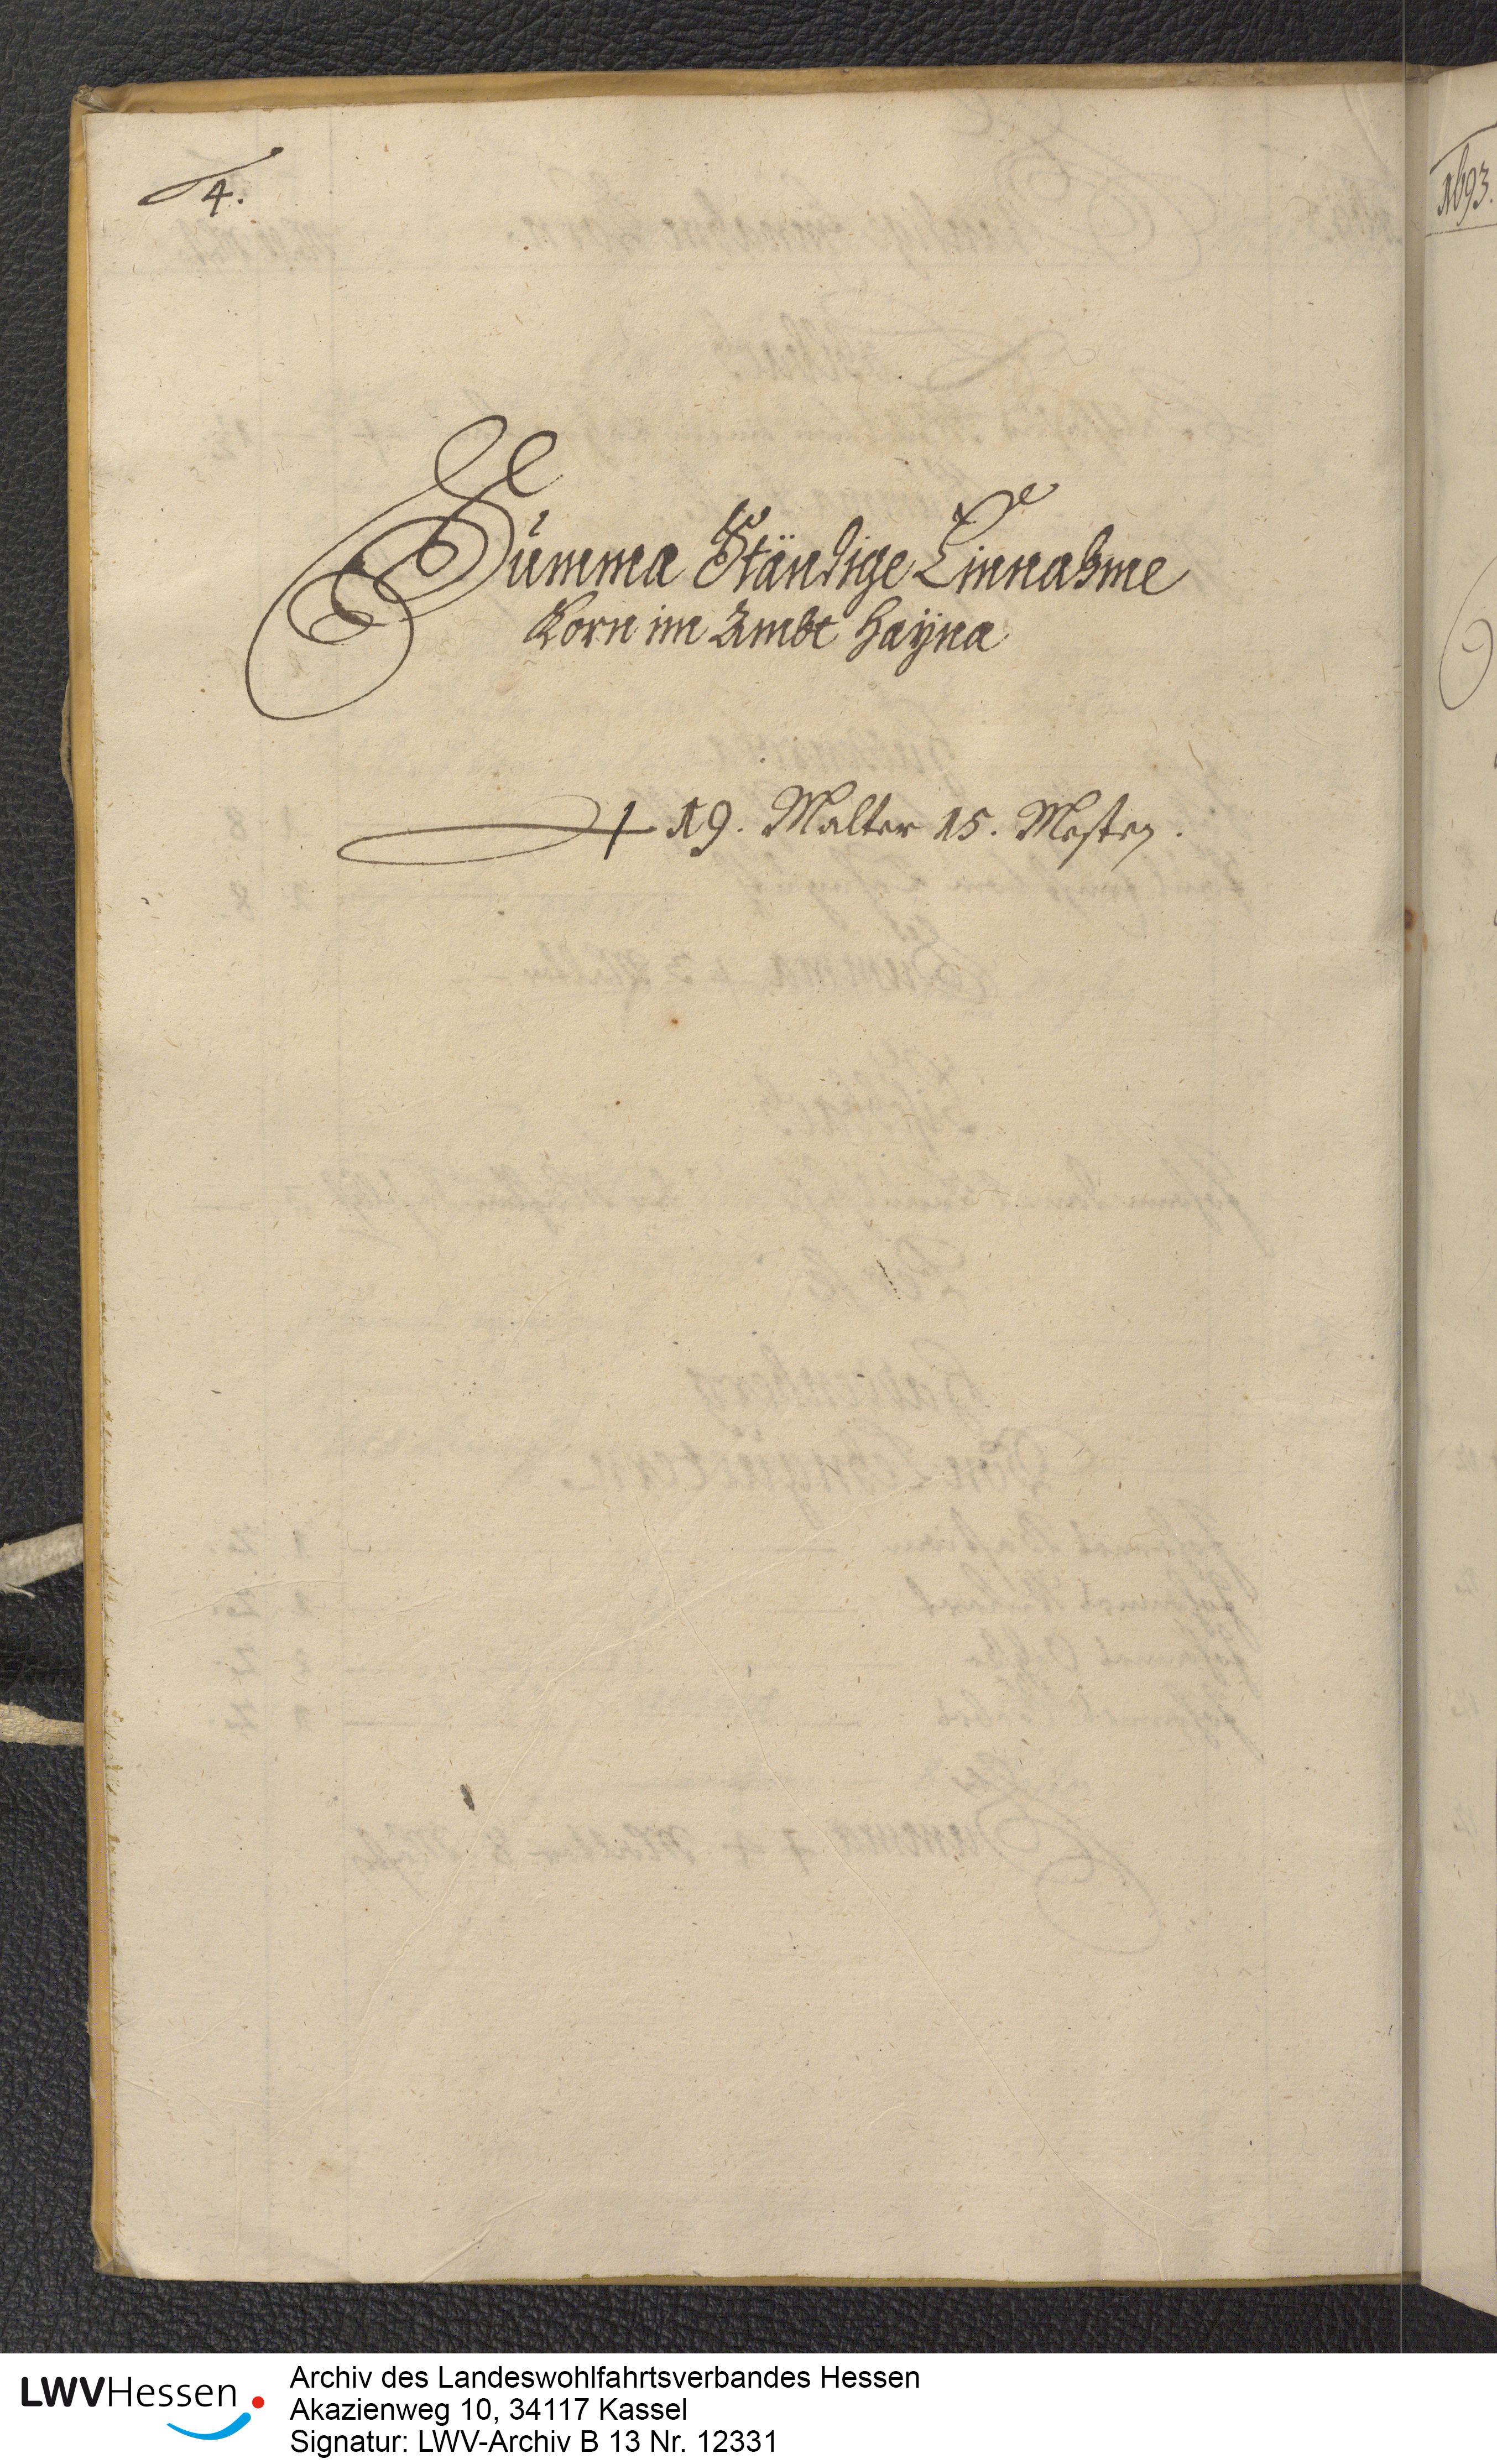 4.
1693.
Summa Ständige Einnahme
Korn im Ambt Haÿna
19. Malter 15. Mesten.
LWVHessen
Archiv des Landeswohlfahrtsverbandes Hessen
Akazienweg 10, 34117 Kassel
Signatur: LWV-Archiv B 13 Nr. 12331